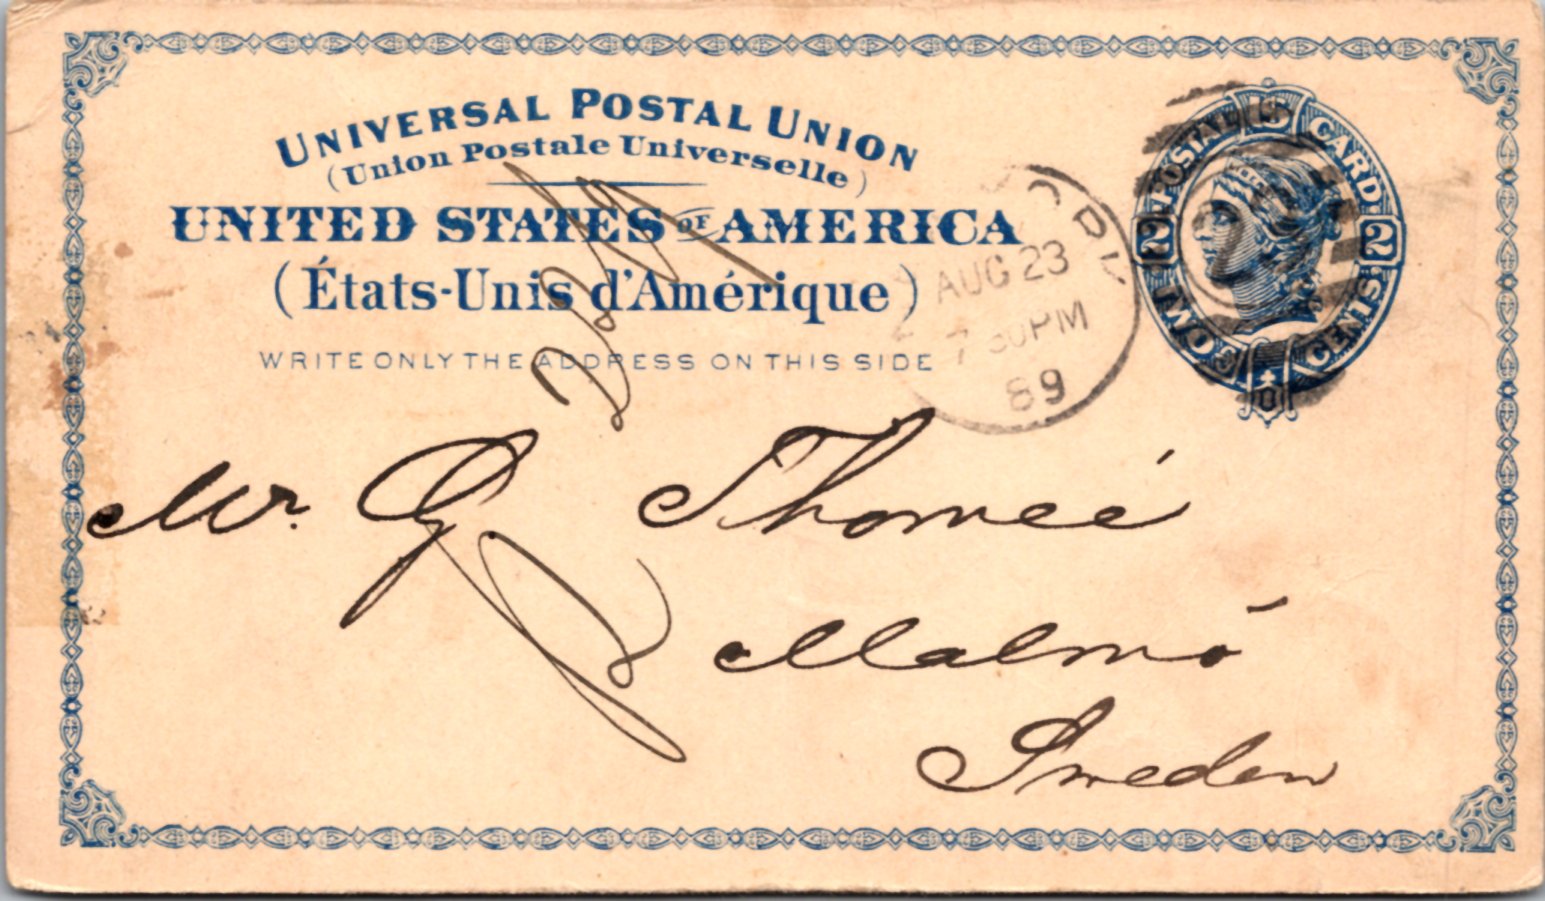 UNIVERSAL POSTAL UNION
(Union Postale Universelle)
UNITED STATES OF AMERICA
(États-Unis d'Amérique)
WRITE ONLY THE ADDRESS ON THIS SIDE
POSTAL CARD
2 2
TWO CENTS
22
AUG 23
7 30PM
89
Mr. G Thomée
Malmö
Sweden